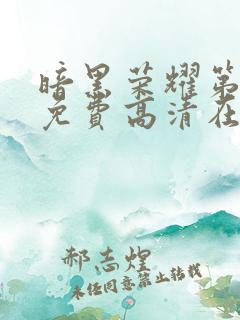 暗黑荣耀第
免費高清在
郝志煌
未经同意禁止转载